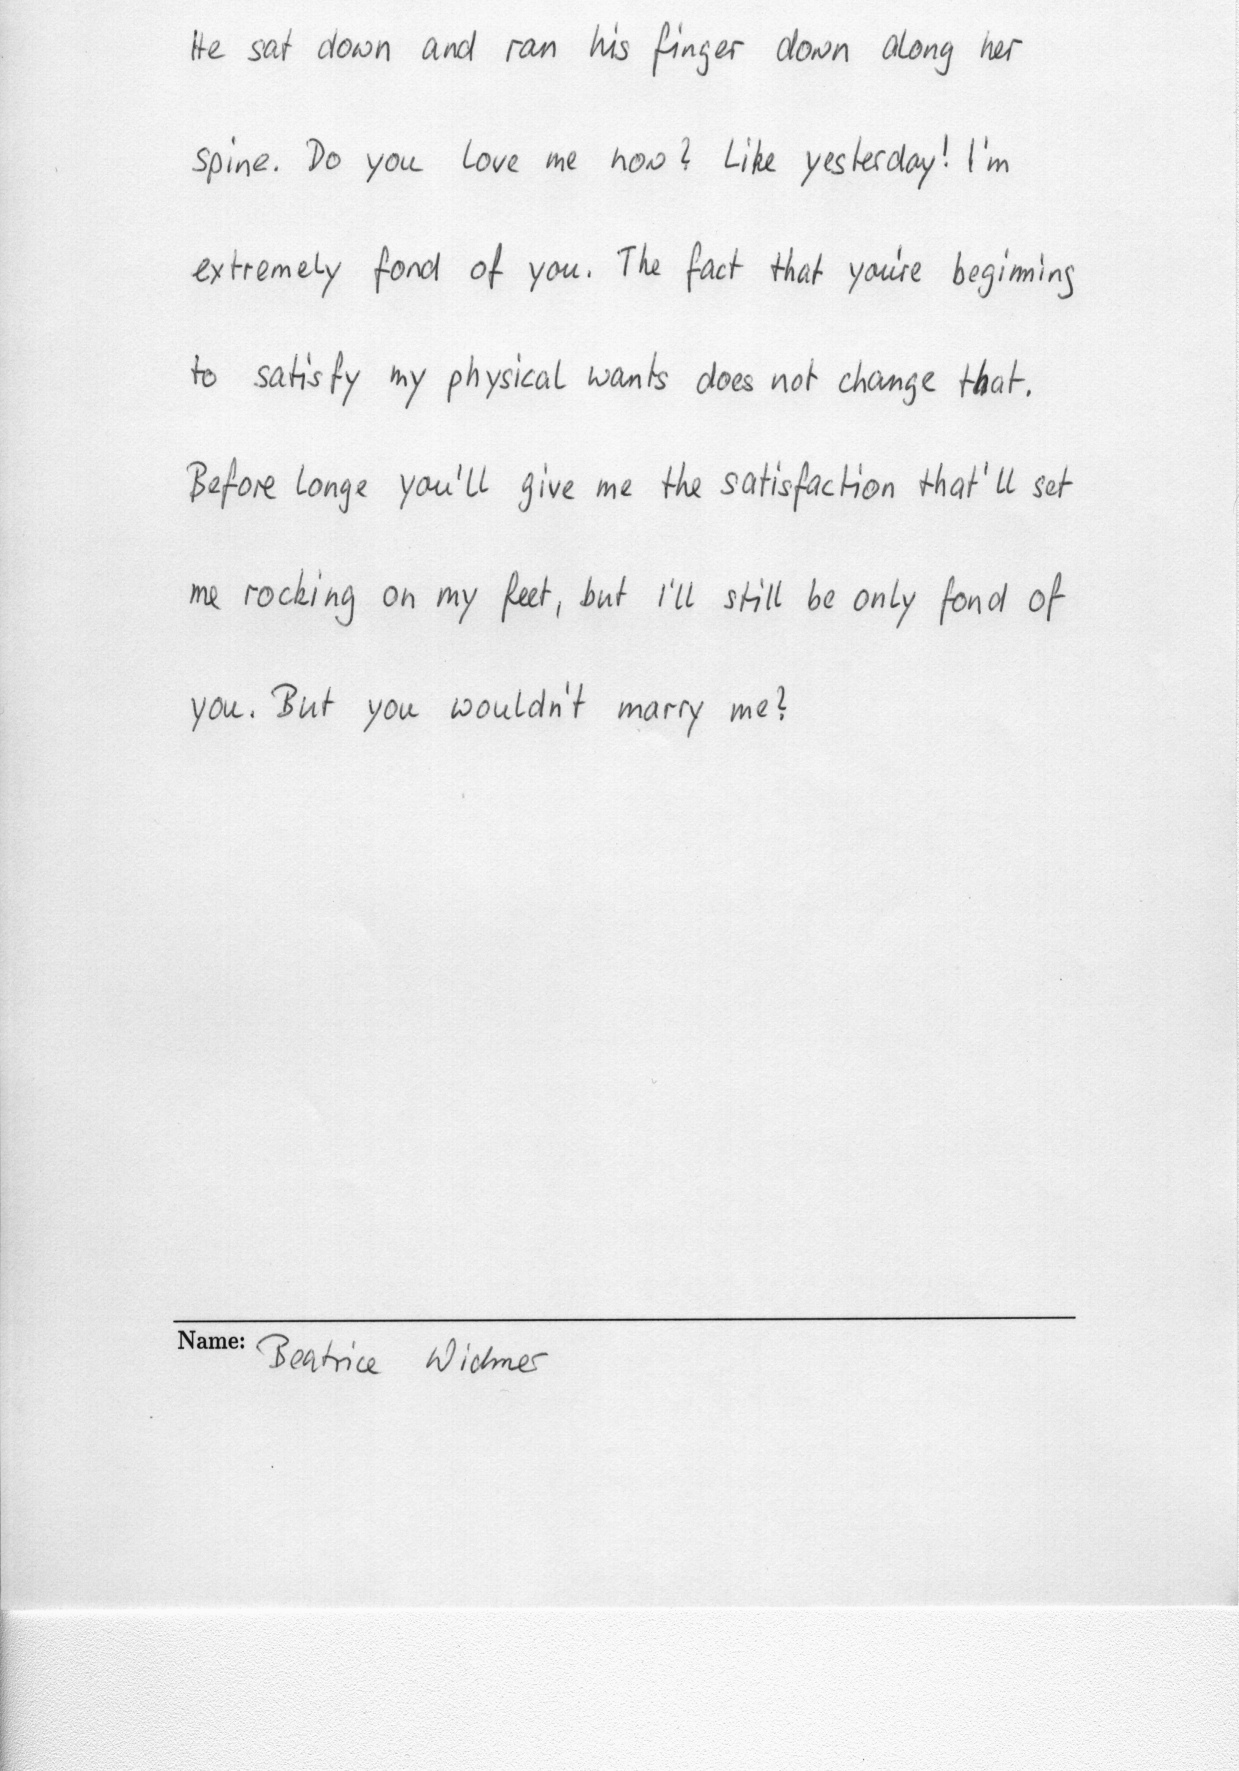 He sat down and ran his finger down along her
spine. Do you love me now? Like yesterday! I'm
extremely fond of you. The fact that you're beginning
to satisfy my physical wants does not change that.
Before longe you'll give me the satisfaction that'll set
me rocking on my feet, but i'll still be only fond of
you. But you wouldn't marry me?
Name: Beatrice Widmer